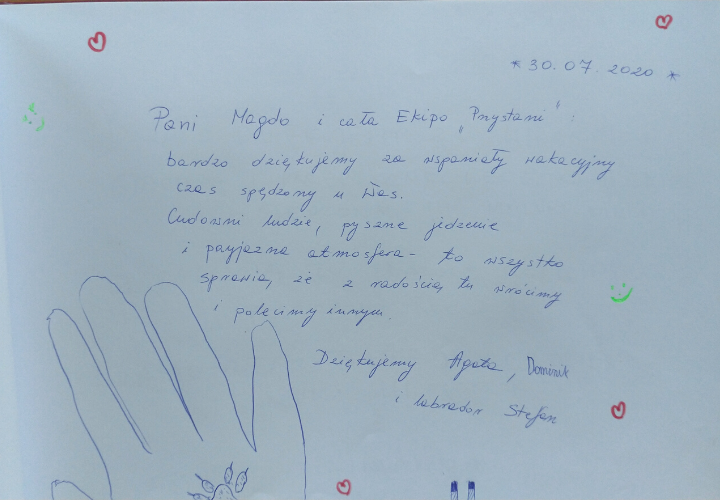 * 30.07.2020 *
Pani Magdo i cała Ekipo „Przystani”:
bardzo dziękujemy za wspaniały wakacyjny
czas spędzony u Was.
Cudowni ludzie, pyszne jedzenie
i przyjazna atmosfera - to wszystko
sprawia, że z radością tu wrócimy
i polecimy innym.
Dziękujemy Agata, Dominik
i labrador Stefan